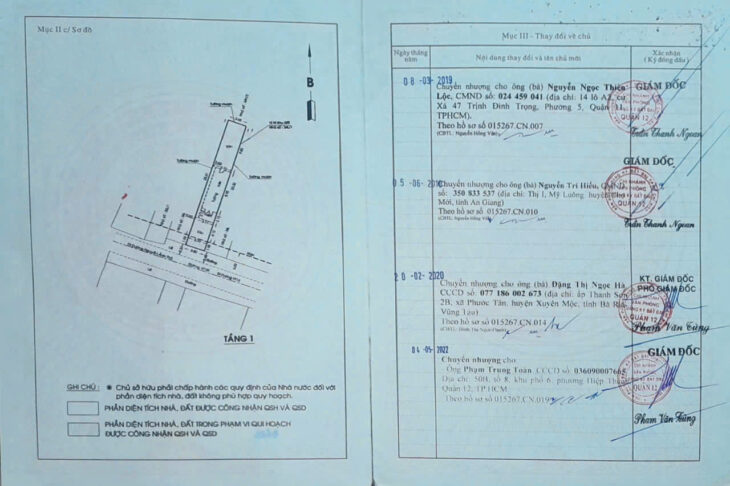 Mục II c/ Sơ đồ
B
TẦNG 1
GHI CHÚ :
Chủ sở hữu phải chấp hành các quy định của Nhà nước đối với
phần diện tích nhà, đất không phù hợp quy hoạch.
PHẦN DIỆN TÍCH NHÀ, ĐẤT ĐƯỢC CÔNG NHẬN QSH VÀ QSD
PHẦN DIỆN TÍCH NHÀ, ĐẤT TRONG PHẠM VI QUI HOẠCH
ĐƯỢC CÔNG NHẬN QSH VÀ QSD
Mục III - Thay đổi về chủ
Ngày tháng năm
Nội dung thay đổi và tên chủ mới
Xác nhận
(Ký đóng dấu)
08 -03- 2019
Chuyển nhượng cho ông (bà) Nguyễn Ngọc Thiên
Lộc, CMND số: 024 459 041 (địa chỉ: 14 lô A2, cư
Xá 47 Trịnh Đình Trọng, Phường 5, Quận 11,
TPHCM).
Theo hồ sơ số 015267.CN.007
(CBTL: Nguyễn Hồng Vân)
GIÁM ĐỐC
QUẬN 12
Trần Thanh Ngoan
05 -06-
Chuyển nhượng cho ông (bà) Nguyễn Trí Hiếu,
số: 350 833 537 (địa chỉ: Thị 1, Mỹ Luông, huyện
Mới, tỉnh An Giang)
Theo hồ sơ số 015267.CN.010
(CBTL: Nguyễn Hồng Vân)
GIÁM ĐỐC
QUẬN 12
Trần Thanh Ngoan
20 -02- 2020
Chuyển nhượng cho ông (bà) Đặng Thị Ngọc Hà
CCCD số: 077 186 002 673 (địa chỉ: ấp Thanh Sơn
2B, xã Phước Tân, huyện Xuyên Mộc, tỉnh Bà Rịa
Vũng Tàu)
Theo hồ sơ số 015267.CN.014
KT. GIÁM ĐỐC
PHÓ GIÁM ĐỐC
QUẬN 12
Phạm Văn Tửng
04 -05- 2022
Chuyển nhượng cho
Ông Phạm Trung Toản, CCCD số:
Địa chỉ: 50H, số 8, khu phố 6, phường Hiệp Thành
Quận 12, TP HCM
Theo hồ sơ số 015267.CN.019
GIÁM ĐỐC
QUẬN 12
Phạm Văn Tửng